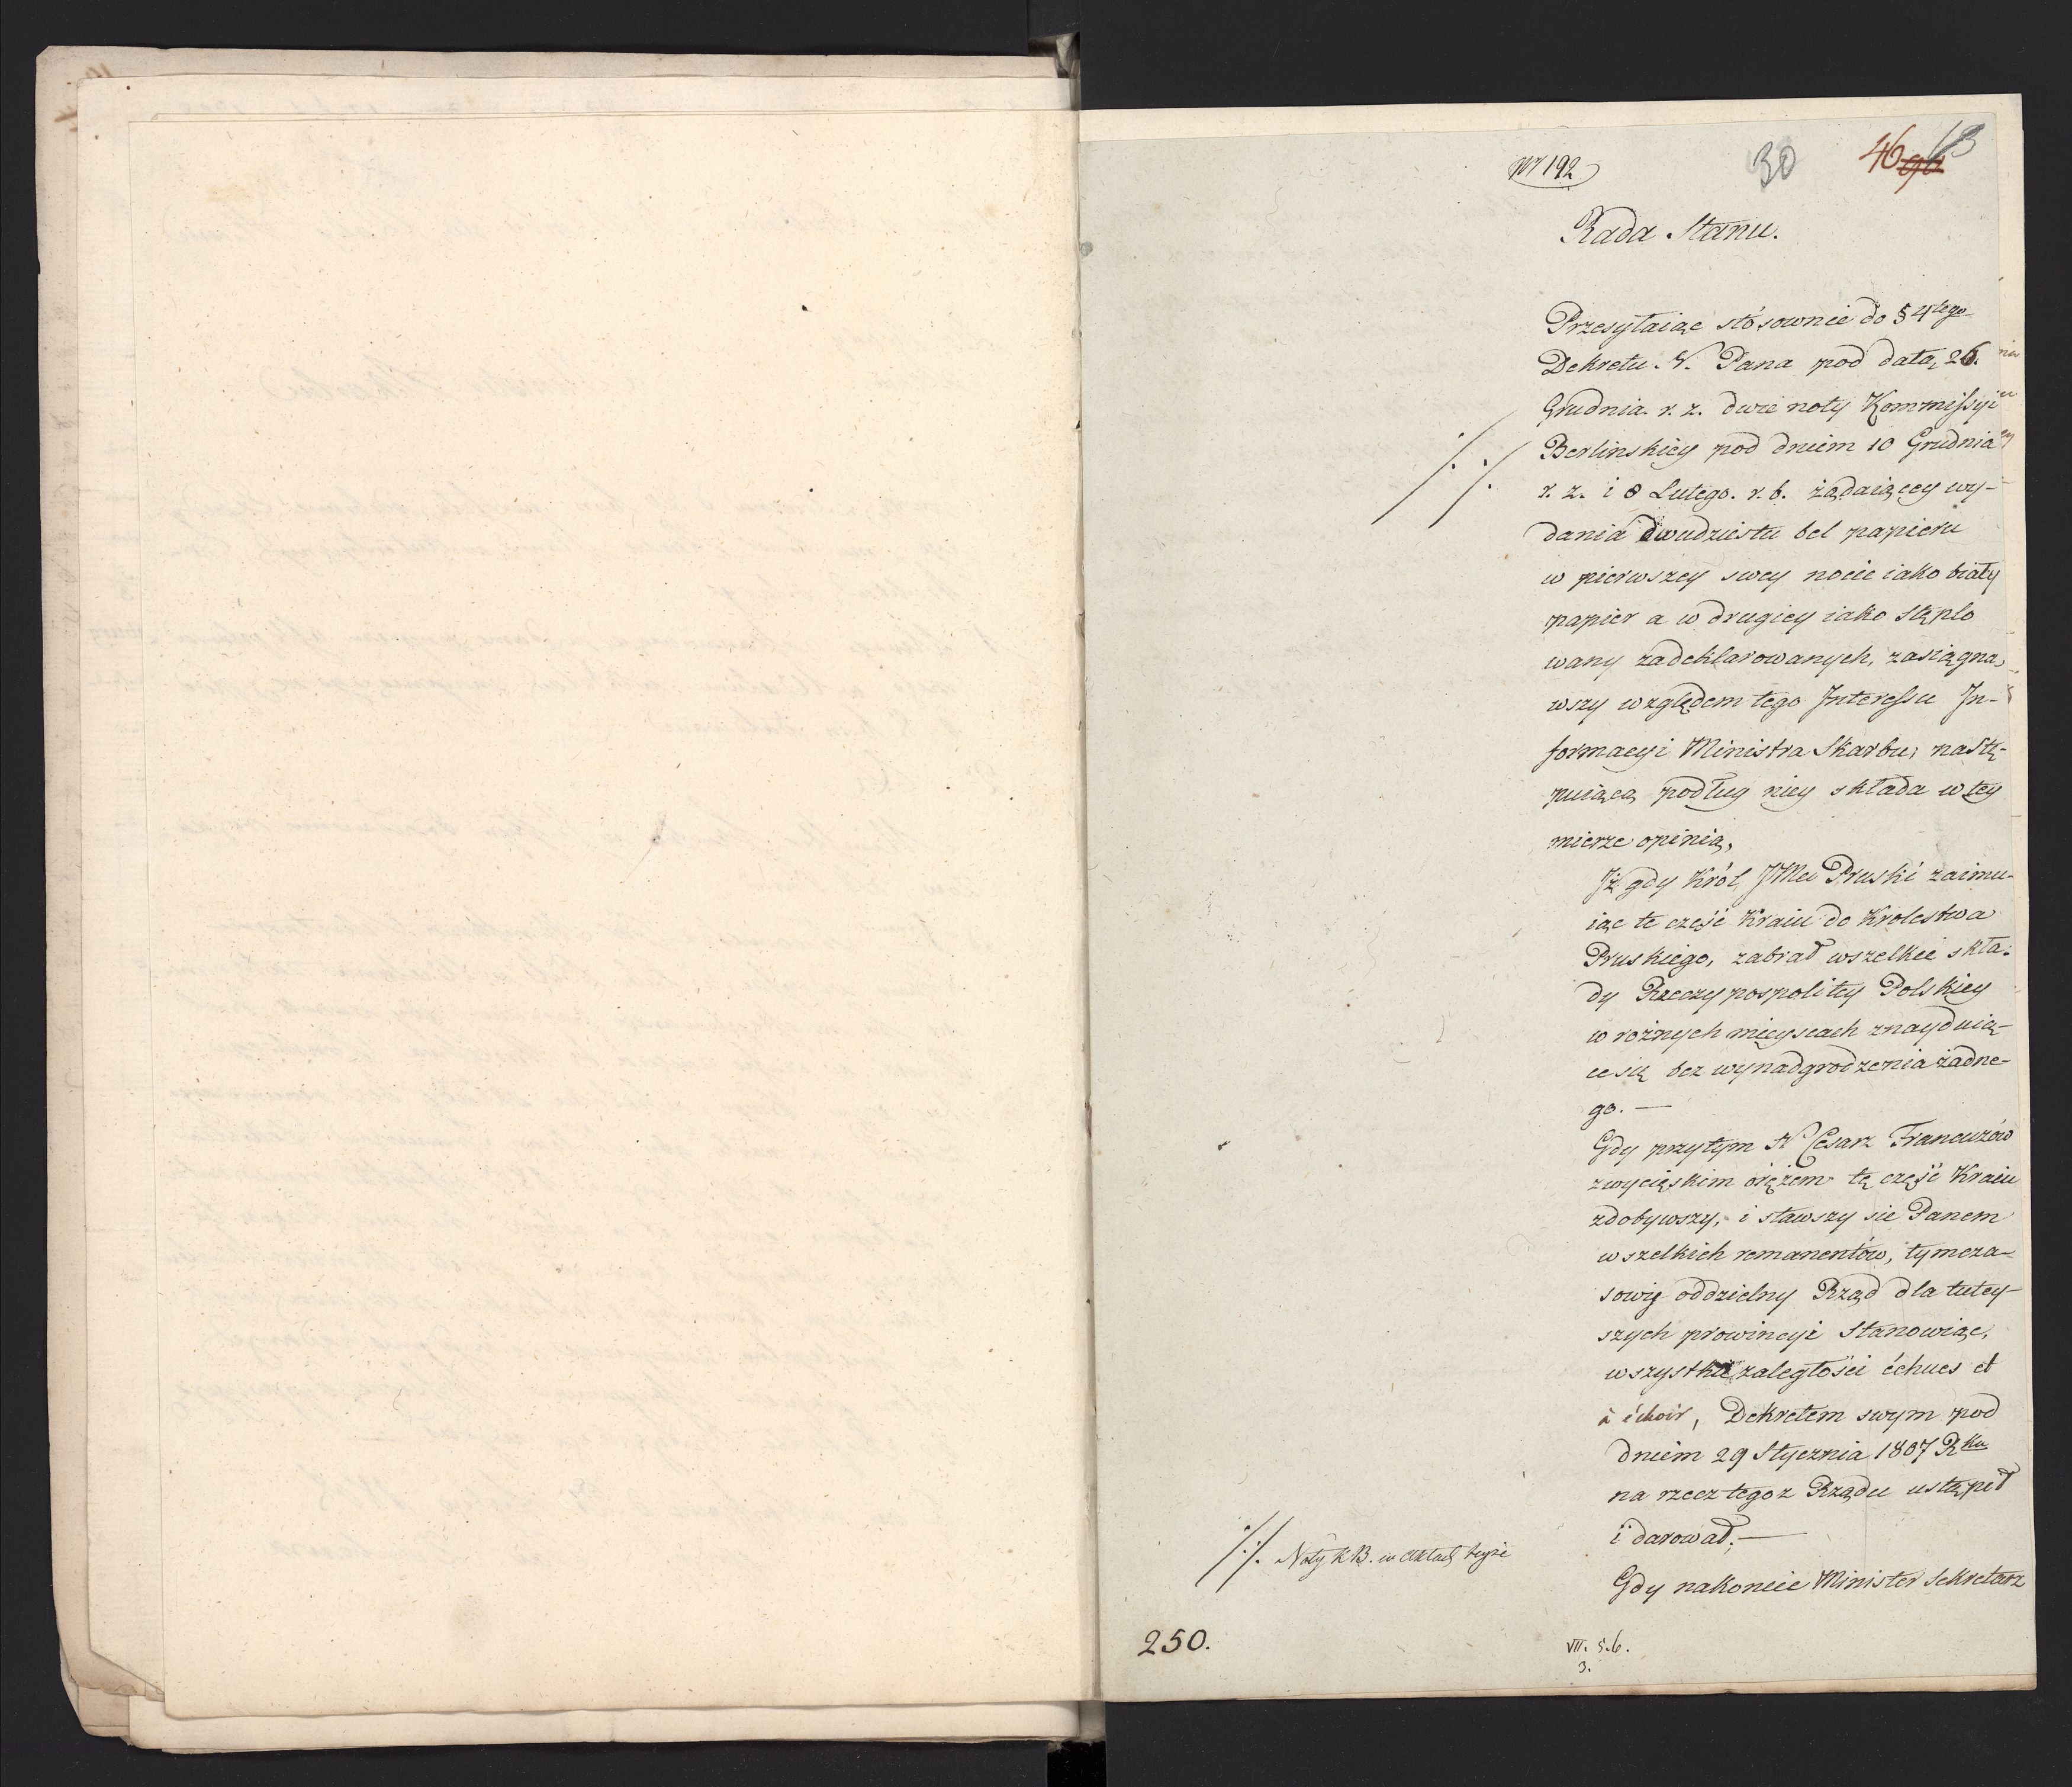 Nr 192
30
46
13
Rada Stanu.
Przesyłaiąc stósownie do § 4tego
Dekretu N. Pana pod datą 26.
Grudnia. r. z. dwie noty Kommissyi
Berlinskiey pod dniem 10 Grudnia
r. z. i 8 Lutego. r. b. żądaiącey wy-
dania dwudziestu bel papieru
w pierwszey swey nocie iako biały
papier a w drugiey iako stęplo
wany zadeklarowanych, zasiągną-
wszy względem tego Interessu In-
formacyi Ministra Skarbu, nastę-
puiącą podług niey składa w tey
mierze opinią,
Iż gdy Król JMci Pruski zaimu-
iąc te część Kraiu do Krolestwa
Pruskiego, zabrał wszelkie skła-
dy Rzeczypospolitey Polskiey
w rożnych mieyscach znayduią-
ce się bez wynadgrodzenia żadne-
go. —
Gdy przytym N Cesarz Francuzów
zwycięskim orężem tę część Kraiu
zdobywszy, i stawszy sie Panem
wszelkich remanentów, tymcza-
sowie oddzielny Rząd dla tutey-
szych prowincyi stanowiąc,
wszystkie zaległości échues et
à échoir, Dekretem swym pod
dniem 29 Stycznia 1807 Rku
na rzecz tegoz Rządu ustąpił
i darował; —
Gdy nakoniec Minister Sekretarz
·/·/· Noty K B. w aktach
250.
VII. 5.6.
3.